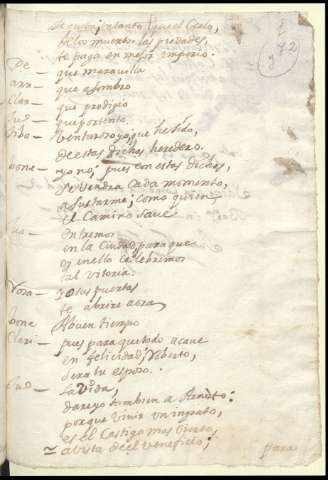 te guia, en tanto que el Cielo,
de los muertos las piedades,
te paga en mejor imperio.
De — que marauilla
Arn — que asombro
Clar — que prodigio
Lud — que portento.
Venturoso yo, que he sido,
de estas dichas heredero.
Done — yo no; pues con estas dichas,
se vendra Cada momento,
a sustarme; como quien
el Camino saue
entremos
en la Ciudad, para que
oy en ella Celebremos
tal vitoria.
Rosa — yo sus puertas
te abrire aora
Done — A buen tiempo
Clari — pues para que todo acaue
en felicidad, Roberto,
sera tu esposo.
Lud — la Vida,
dareyo tambien a Arnesto:
porque viuir vn ingrato,
es el Castigo mas cierto,
a vista de el veneficio;
para
92